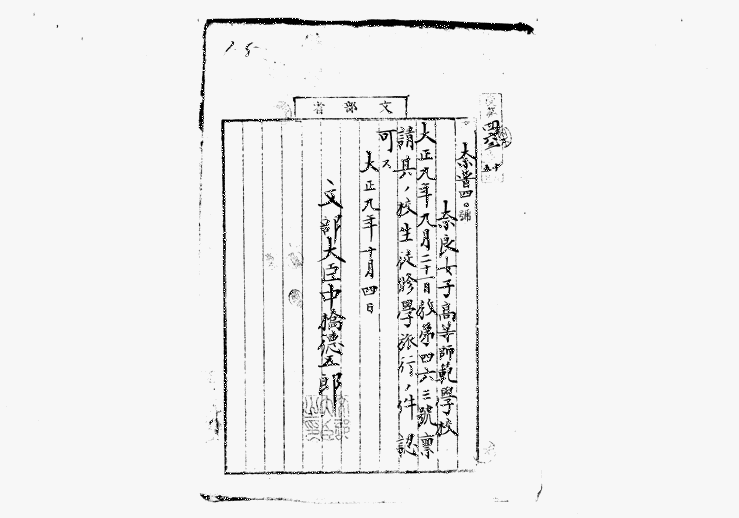 文部省
奈普四〇號
奈良女子高等師範學校
大正九年九月二十一日發第四六三號稟
請其ノ校生徒修學旅行ノ件認
可ス
大正九年十月四日
文部大臣中橋德五郎